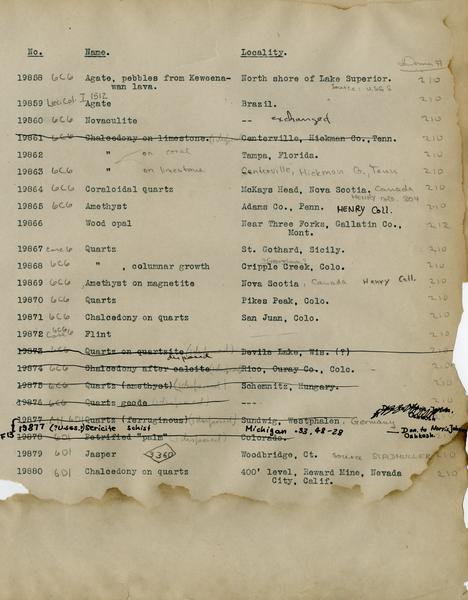 No. Name. Locality.
19858 6C6 Agate, pebbles from Keweena- North shore of Lake Superior. 210
wan lava. Source: USGS
19859 I 1512 Agate Brazil. 210
19860 6C6 Novaculite -- exchanged 210
19861 6C6 Chalcedony on limestone. Centerville, Hickman Co., Tenn. 210
19862 " on coral Tampa, Florida. 210
19863 6C6 " on limestone Centerville, Hickman Co, Tenn 210
19864 6C6 Coraloidal quartz McKays Head, Nova Scotia. Canada 210
19865 6C6 Amethyst Adams Co., Penn. HENRY Coll. 210
19866 Wood opal Near Three Forks, Gallatin Co., 212
Mont.
19867 Quartz St. Gothard, Sicily. 210
19868 6C6 " , columnar growth Cripple Creek, Colo. 210
19869 6C6 Amethyst on magnetite Nova Scotia. Canada Henry Coll. 210
19870 6C6 Quartz Pikes Peak, Colo. 210
19871 6C6 Chalcedony on quartz San Juan, Colo. 210
19872 6C6 Flint 210
19873 6C6 Quartz on quartzite Devils Lake, Wis. (?) 210
disposed
19874 6C6 Chalcedony after calcite Rico, Ouray Co., Colo. 210
19875 6C6 Quartz (amethyst) (disposed) Schemnitz, Hungary. 210
19876 6C6 Quartz geode (disposed) --- 210
19877 601 Quartz (ferruginous) (disposed) Sundwig, Westphalen, Germany
19877 (7usas) Sericite schist Michigan -33, 48-28 Don. to
Oshkosh
19878 601 Petrified "palm" (disposed) Colorado.
19879 601 Jasper 3360 Woodbridge, Ct. Source STADMULLER 210
19880 601 Chalcedony on quartz 400' level, Reward Mine, Nevada 210
City, Calif.